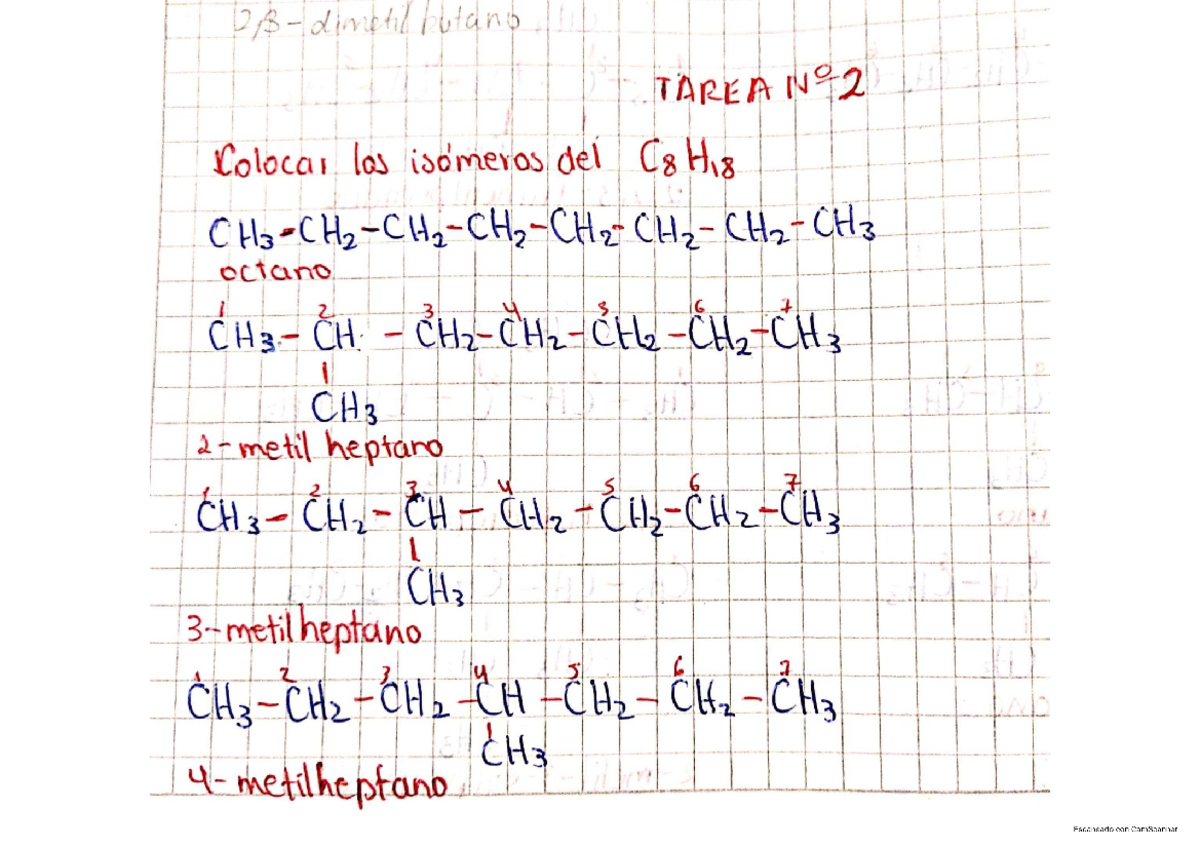 2,3-dimetil butano
TAREA Nº2
Colocar los isómeros del C8 H18
CH3-CH2-CH2-CH2-CH2-CH2-CH2-CH3
octano
1 2 3 4 5 6 7
CH3-CH-CH2-CH2-CH2-CH2-CH3
CH3
2-metil heptano
1 2 3 4 5 6 7
CH3-CH2-CH-CH2-CH2-CH2-CH3
CH3
3-metilheptano
1 2 3 4 5 6 7
CH3-CH2-CH2-CH-CH2-CH2-CH3
CH3
4-metilheptano
Escaneado con CamScanner